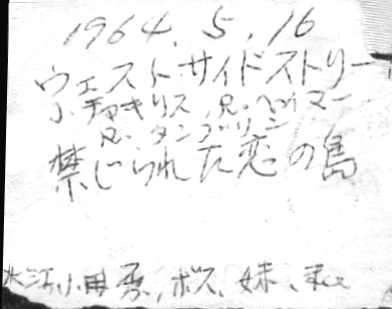 1964.5.16
ウェストサイドストリー
J.チャキリス,R.ベイマー
R.タンブリン
禁じられた恋の島
小田原,ボス、妹、私